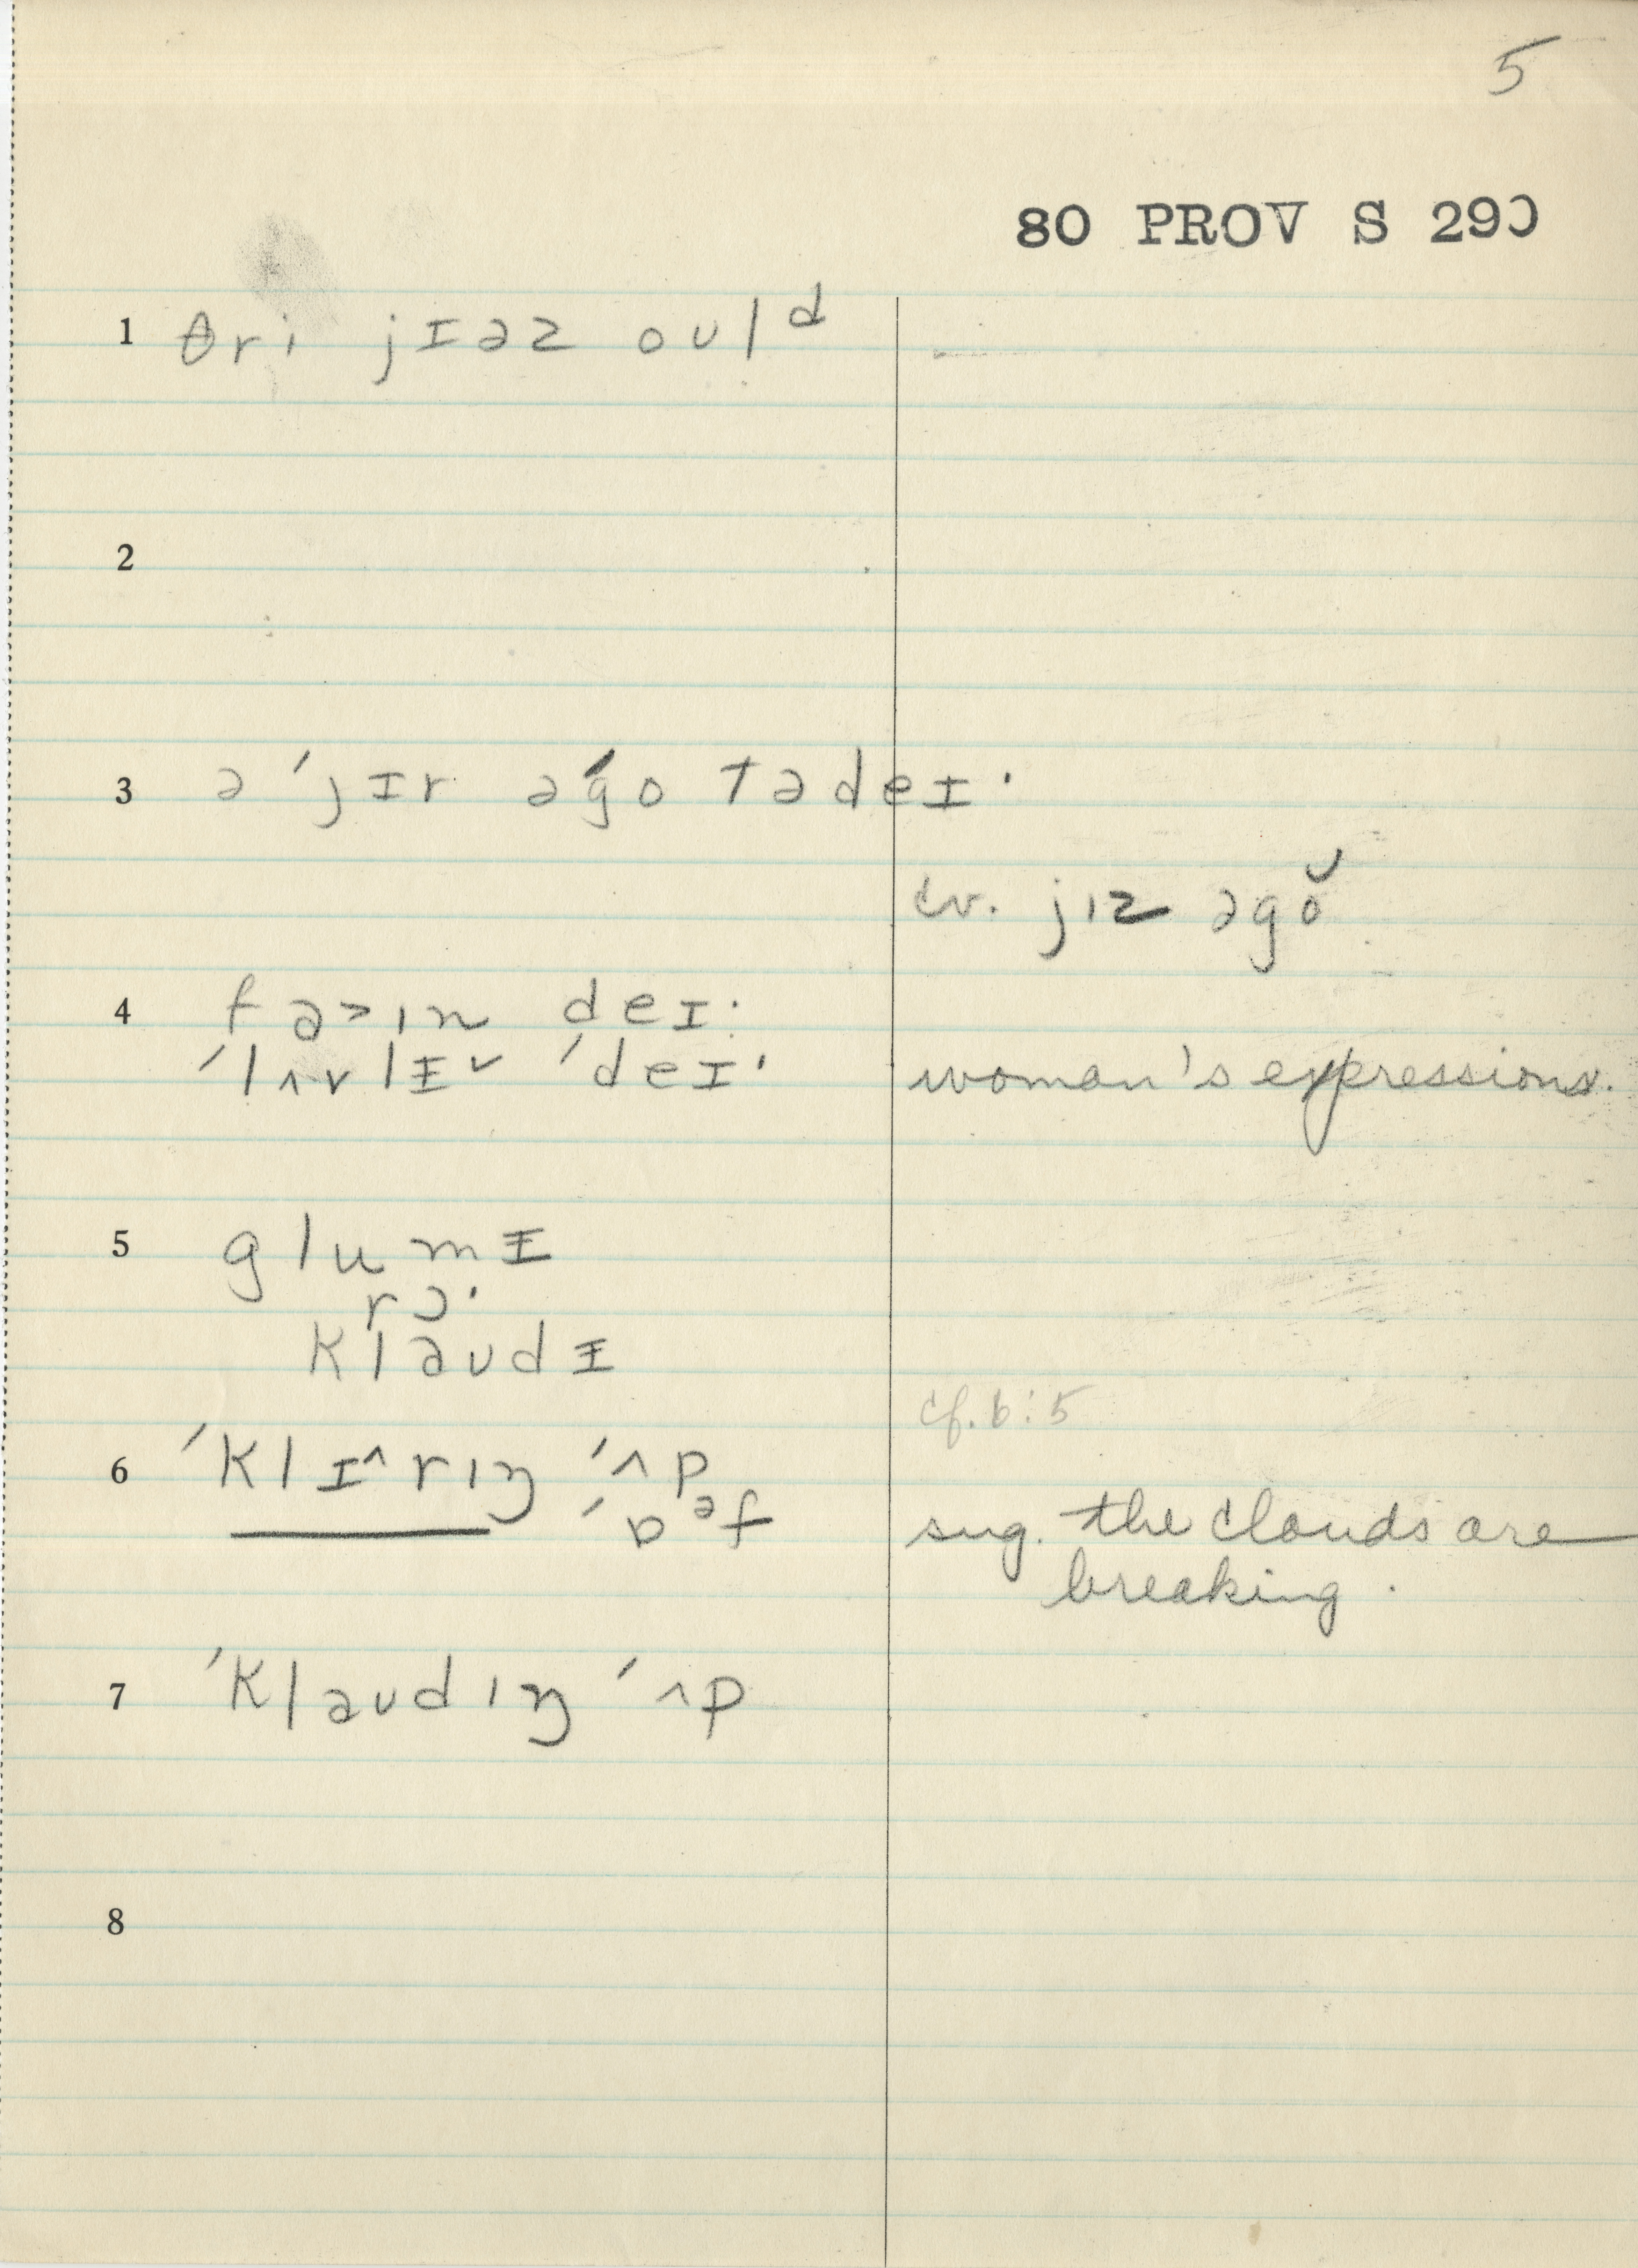 5
80 PROV S 290
1 θri jɪəz oʊlᵈ
2
3 ə ˈjɪr əˈgo tədeɪ·
cv. jɪz əgŏ
4 fa>ɪn deɪ·
ˈlʌvlɪ˅ ˈdeɪ· woman's expressions.
5 glumɪ
rɔ·
klaudɪ
cf. 6:5
6 ˈklɪ^rɪŋ ˈʌp
ˈɒᵊf sug. the clouds are
breaking.
7 ˈklaudɪŋ ˈʌp
8